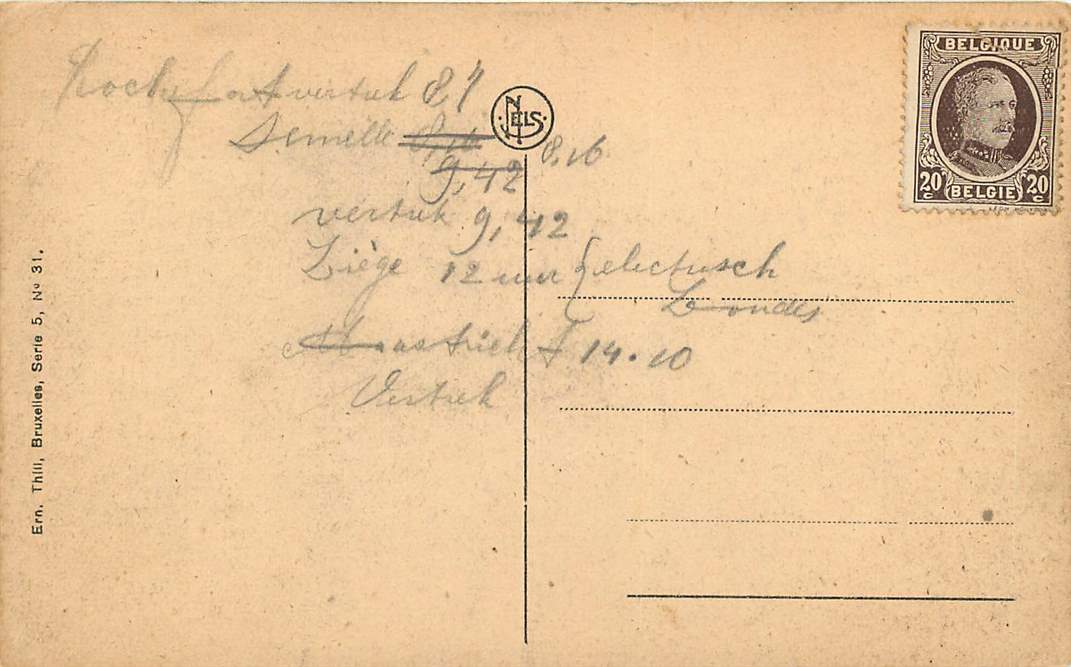 Rochefort vertrek 8,7
Jemelle 8,16
8,16
9,42
vertrek 9,42
Liège 12 uur { electrisch
Londes
Maastricht 14.10
Vertrek
NELS
BELGIQUE
20 c BELGIE 20 c
Ern. Thill, Bruxelles, Serie 5, No 31.